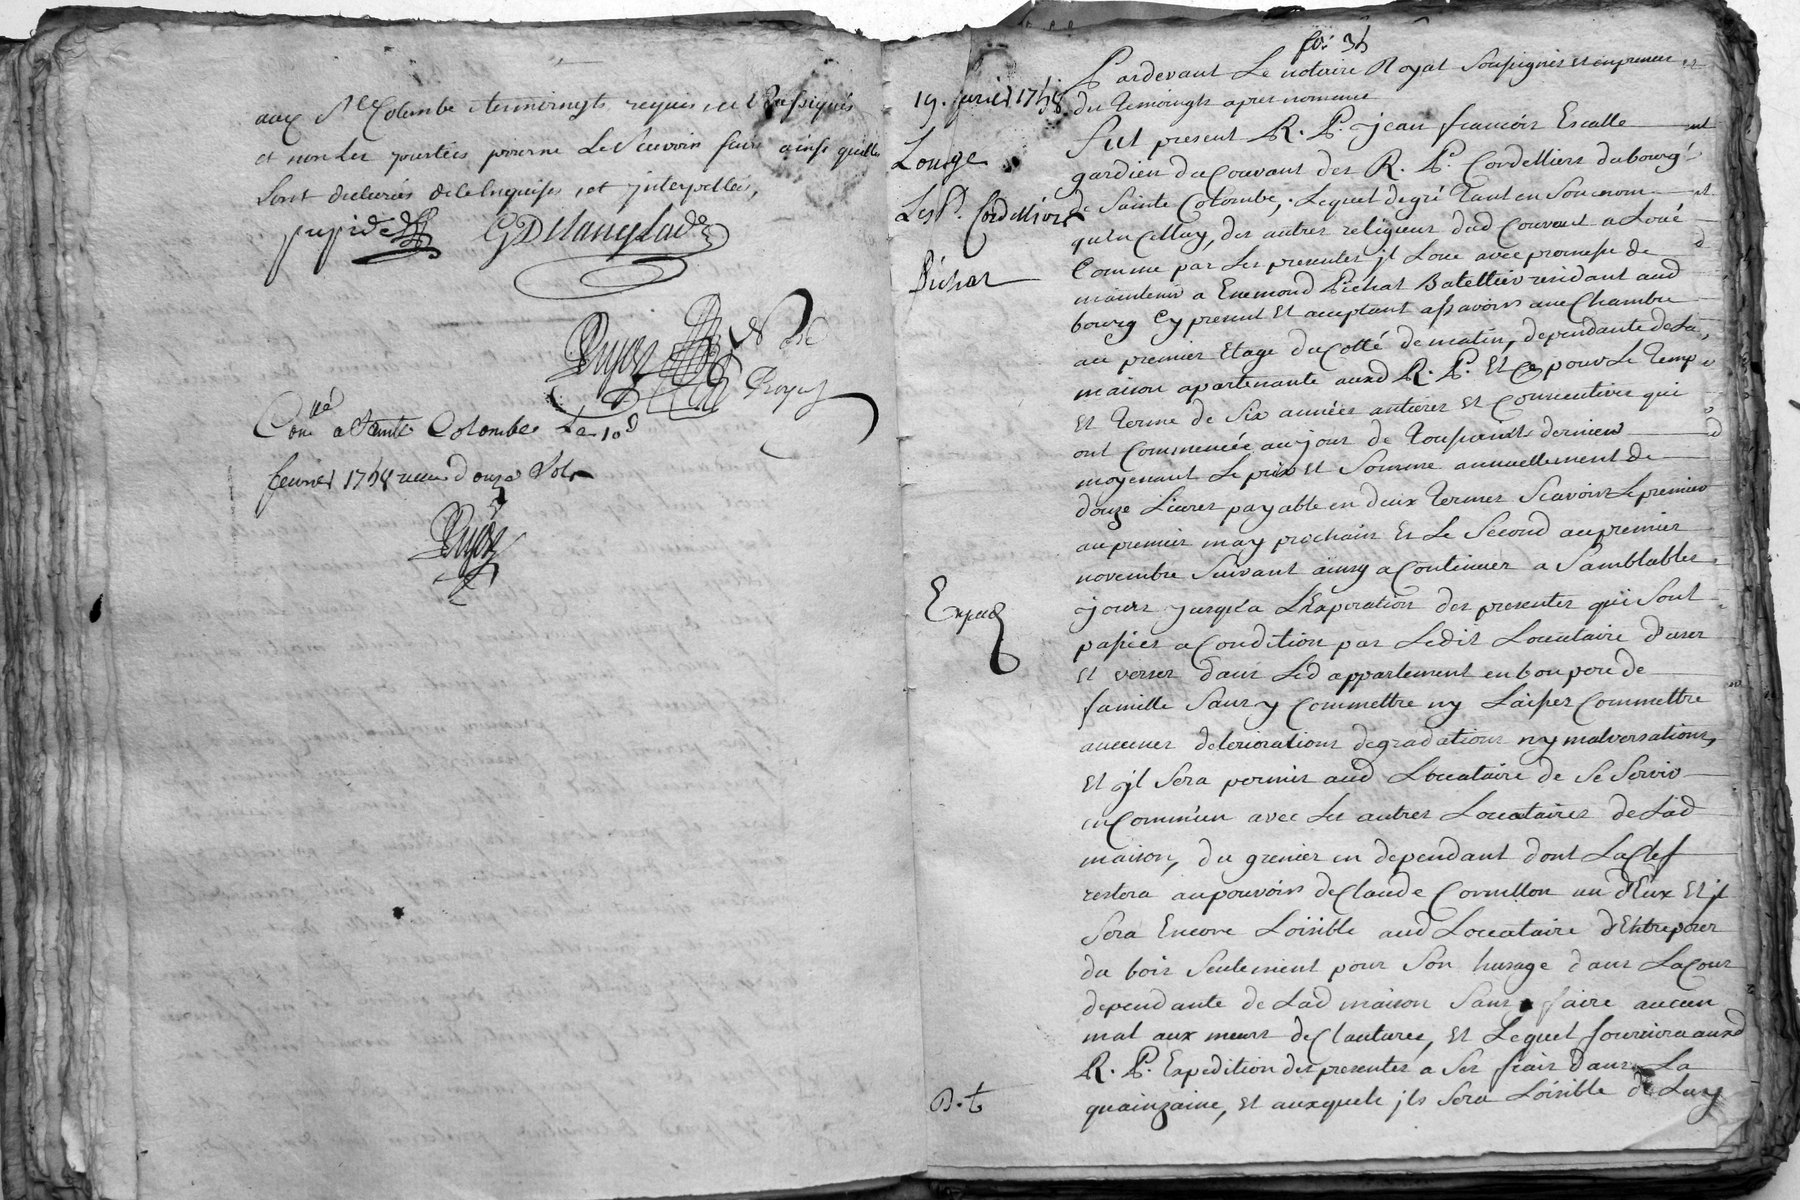 aud Ste Colombe temoingts requis et soussignés
et non les parties pour ne le sçavoir faire ainsi quelles
sont declarés de ce enquises et interpellées,
GDelanglade
Guyot Nore
Royal
Conllé a Sainte Colombe Le 10e
fevrier 1758 receu douze sols
Guyot
fo: 35
19. janvier 1758
Louage
Les P. Cordelliers
Pichat
Expedé
B.t
Pardevant Le notaire Royal Soussigné et en presence
des temoingts apres nommés
fut present R. P. jean francois Escalle
gardien du Couvant des R. P. Cordelliers du bourg
de Sainte Colombe, Lequel de gré tant en son nom
qu'en Celluy, des autres religieux dud Couvent a Loué
Comme par Les presentes jl Loue avec promesse de
maintenir a Enemond Pichat Batellier residant aud
bourg Cy present Et acceptant assavoir une Chambre
au premier Etage du Cotté de matin, dependante de La
maison apartenante auxd R. P. Et Ce pour Le temp
Et terme de Six années entieres Et Consecutives qui
ont Commencée au jour de toussaints dernier
moyenant Le prix Et Somme annuellement de
douze Livres payable en deux termes Scavoir Le premier
au premier may prochain Et Le Second au premier
novembre Suivant ainsy a Continuer a Samblables
jours jusqu'a L'Expiration des presentes qui Sont
passées a Condition par Ledit Locataire d'user
Et verser dans Led appartement en bon pere de
famille Sans y Commettre ny Laisser Commettre
aucunes deteriorations degradations ny malversations,
Et jl Sera permis aud Locataire de Se Servir
en Commun avec Les autres Locataires de Lad
maison, du grenier en dependant dont La Clef
restera au pouvoir de Claude Cornillon un d'Eux Et jl
Sera Encore Loisible aud Locataire d'Entreposer
du bois Seulement pour Son husage dans La Cour
dependante de Lad maison Sans faire aucun
mal aux meurs de Clautures, Et Lequel fournira auxd
R. P. Expedition des presentes a Ses frais dans La
quainzaine, Et auxquels jls Sera Loisible de Luy